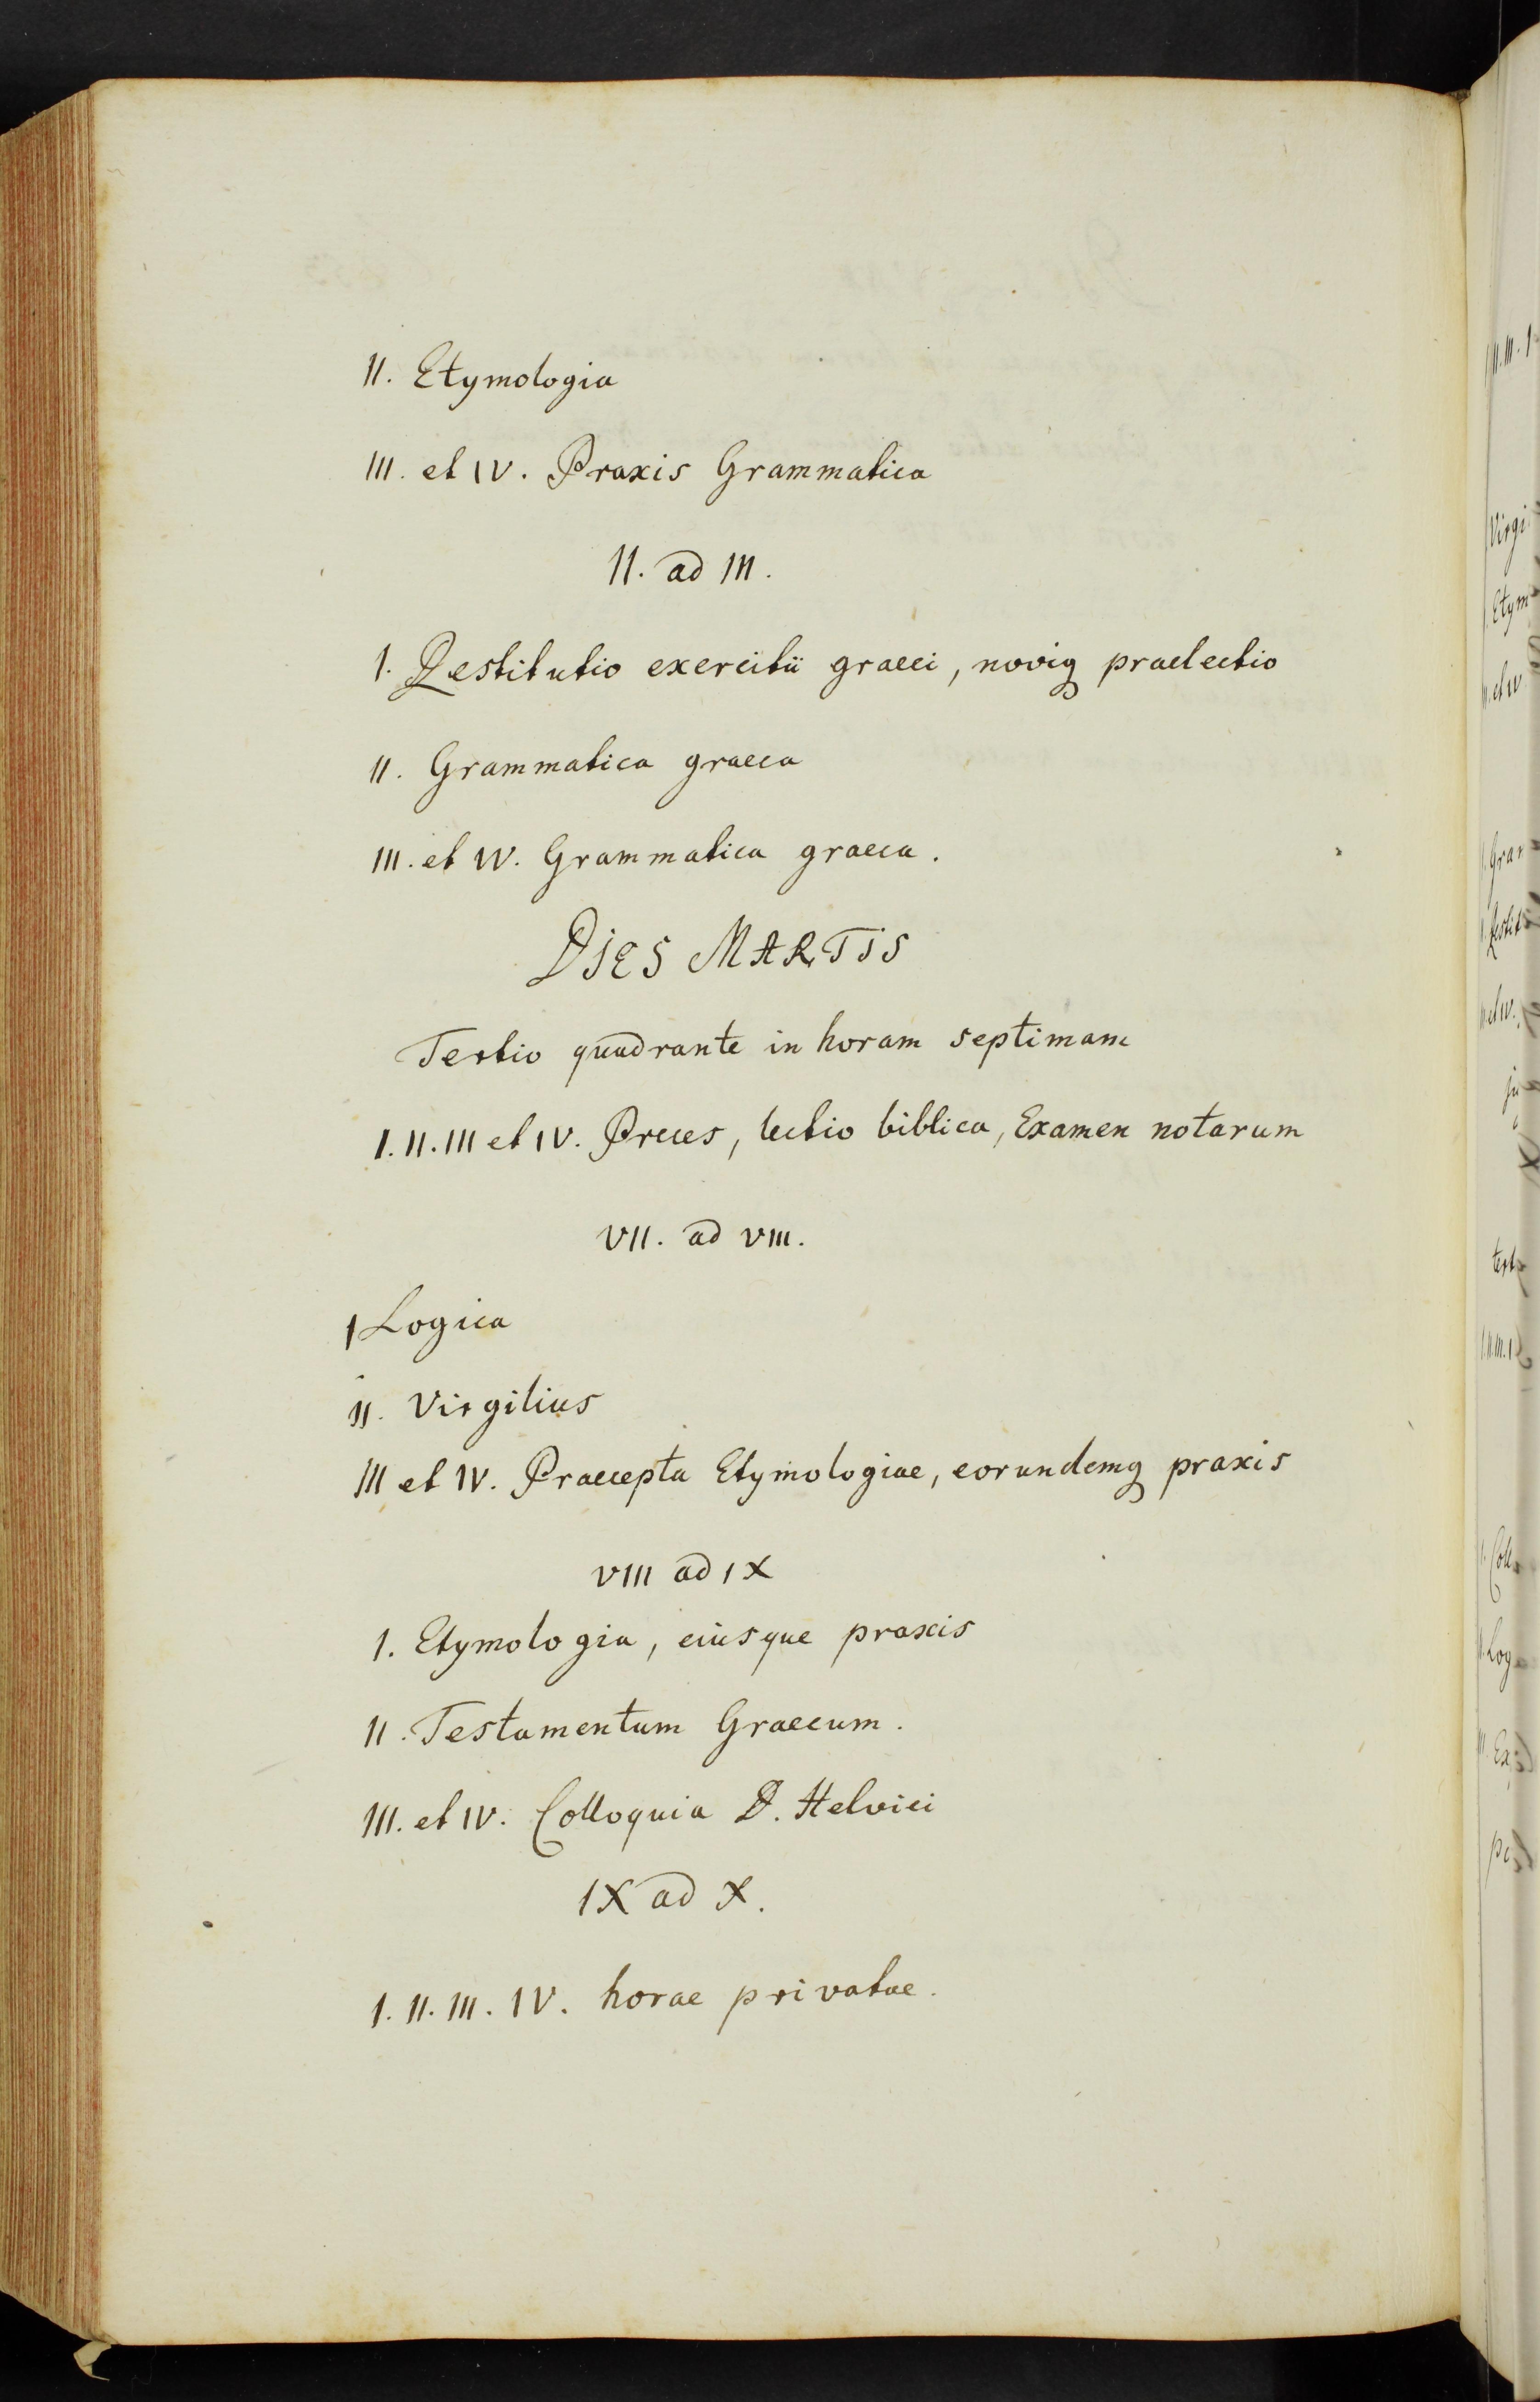 II. Etymologia
III. et IV. Praxis Grammatica
II. ad III.
I. Restitutio exercitii graeci, noviq praelectio
II. Grammatica graeca
III. et IV. Grammatica graeca.
DIES MARTIS
Tertio quadrante in horam septimam
I. II. III et IV. Preces, lectio biblica, Examen notarum
VII. ad VIII.
I Logica
II. Virgilius
III et IV. Praecepta Etymologiae, eorundemq praxis
VIII ad IX
I. Etymologia, eiusque praxis
II. Testamentum Graecum.
III. et IV. Colloquia D. Helvici
IX ad X.
I. II. III. IV. horae privatae.